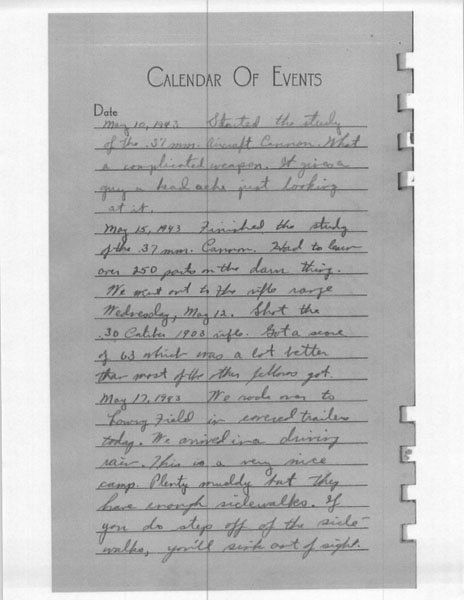 CALENDAR OF EVENTS
Date
May 10, 1943 Started the study
of the .37 mm. Aircraft Cannon. What
a complicated weapon. It gives a
guy a head ache just looking
at it.
May 15, 1943 Finished the study
of the .37 mm. Cannon. Had to learn
over 250 parts on the darn thing.
We went out to the rifle range
Wednesday, May 12. Shot the
.30 Caliber 1903 rifle. Got a score
of 63 which was a lot better
than most of the other fellows got.
May 17, 1943 We rode over to
Lowry Field in covered trailers
today. We arrived in a driving
rain. This is a very nice
camp. Plenty muddy but they
have enough sidewalks. If
you do step off of the side-
walks, you'll sink out of sight.